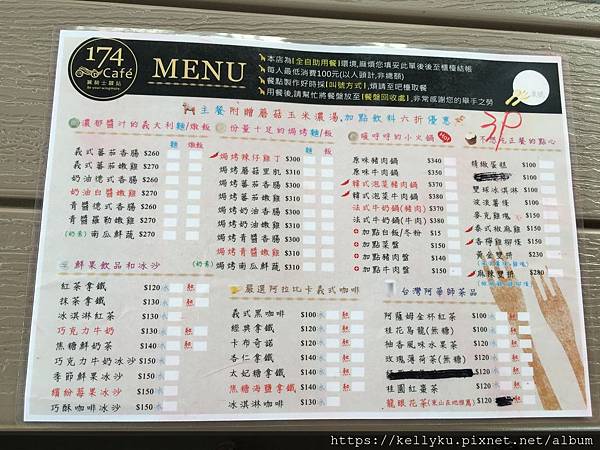 174
Café
翼騎士驛站
MENU
本店為「全自助用餐」環境,麻煩您填妥此單後後至櫃檯結帳
每人最低消費100元(以人頭計,非總額)
餐點製作好時採「叫號方式」,煩請至吧檯取餐
用餐後,請幫忙將餐盤放至「餐盤回收處」,非常感謝您的舉手之勞
主餐附贈蘑菇玉米濃湯,加點飲料六折優惠
濃郁醬汁的義大利麵/燉飯
義式蕃茄香腸 $260
義式蕃茄嫩雞 $270
奶油德式香腸 $260
奶油白醬嫩雞 $270
青醬德式香腸 $260
青醬羅勒嫩雞 $270
(奶素)南瓜鮮蔬 $270
份量十足的焗烤 麵/飯
焗烤辣仔雞丁 $310
焗烤蘑菇里肌 $310
焗烤蕃茄香腸 $300
焗烤蕃茄嫩雞 $310
焗烤奶油香腸 $300
焗烤奶油嫩雞 $310
焗烤青醬香腸 $300
焗烤青醬嫩雞 $310
(奶素)焗烤南瓜鮮蔬 $310
暖呼呼的小火鍋 HOT
原味豬肉鍋 $340
原味牛肉鍋 $340
韓式泡菜豬肉鍋 $370
韓式泡菜牛肉鍋 $390
法式牛奶鍋(豬肉) $370
法式牛奶鍋(牛肉) $390
加點白飯/冬粉 $15
加點菜盤 $90
加點豬肉盤 $90
加點牛肉盤 $150
不想吃正餐的點心
精緻蛋糕 $100
雙球冰淇淋 $100
波浪薯條 $100
麥克雞塊 $100
泰式椒麻雞 $150
香檸雞柳條 $150
黃金雙拼 $230
麻辣雙拼 $280
鮮果飲品和冰沙
紅茶拿鐵 $120 冰 熱
抹茶拿鐵 $130 冰 熱
冰淇淋紅茶 $130 冰
巧克力牛奶 $130 冰 熱
焦糖鮮奶茶 $150 冰 熱
巧克力牛奶冰沙 $150 冰
季節鮮果冰沙 $150 冰
繽紛莓果冰沙 $150 冰
巧酥咖啡冰沙 $150 冰
嚴選阿拉比卡義式咖啡
義式黑咖啡 $100 冰 熱
經典拿鐵 $120 冰 熱
卡布奇諾 $120 冰 熱
杏仁拿鐵 $130 冰 熱
太妃糖拿鐵 $130 冰 熱
焦糖海鹽拿鐵 $130 冰 熱
冰淇淋咖啡 $130 冰
台灣阿華師茶品
阿薩姆金杯紅茶 $100 冰 熱
桂花烏龍(無糖) $100 冰 熱
柚香風味水果茶 $120 冰 熱
玫瑰薄荷茶(無糖) $120 熱
桂圓紅棗茶 $120 熱
龍眼花茶(東山在地龍眼蜜) $120
https://kellyku.pixnet.net/album